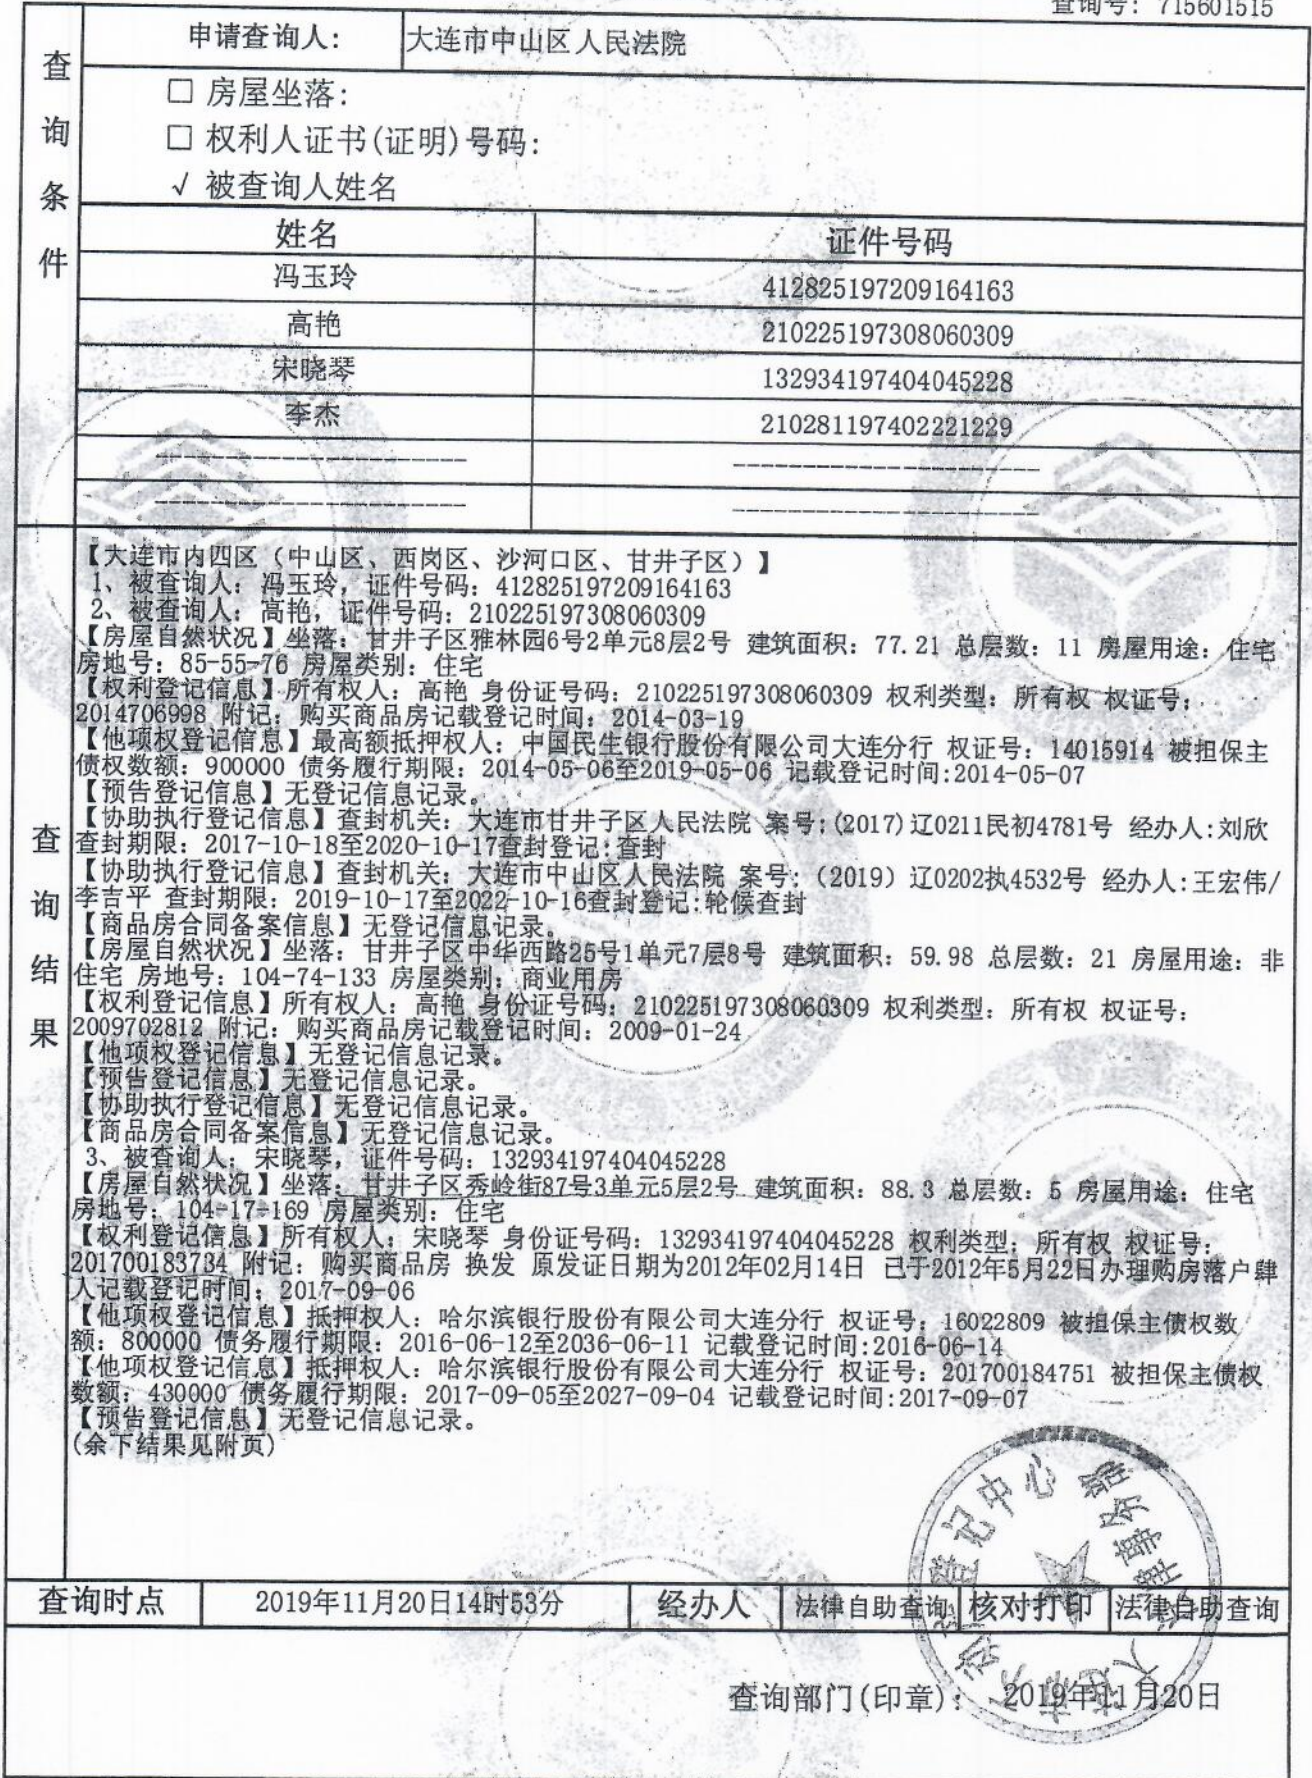 查询号: 715601515
查询条件
申请查询人: 大连市中山区人民法院
□ 房屋坐落:
□ 权利人证书(证明)号码:
√ 被查询人姓名
姓名 证件号码
冯玉玲 412825197209164163
高艳 210225197308060309
宋晓琴 132934197404045228
李杰 210281197402221229
查询结果
【大连市内四区（中山区、西岗区、沙河口区、甘井子区）】
1、被查询人: 冯玉玲, 证件号码: 412825197209164163
2、被查询人: 高艳, 证件号码: 210225197308060309
【房屋自然状况】坐落: 甘井子区雅林园6号2单元8层2号 建筑面积: 77.21 总层数: 11 房屋用途: 住宅
房地号: 85-55-76 房屋类别: 住宅
【权利登记信息】所有权人: 高艳 身份证号码: 210225197308060309 权利类型: 所有权 权证号:
2014706998 附记: 购买商品房记载登记时间: 2014-03-19
【他项权登记信息】最高额抵押权人: 中国民生银行股份有限公司大连分行 权证号: 14015914 被担保主
债权数额: 900000 债务履行期限: 2014-05-06至2019-05-06 记载登记时间:2014-05-07
【预告登记信息】无登记信息记录。
【协助执行登记信息】查封机关: 大连市甘井子区人民法院 案号:(2017)辽0211民初4781号 经办人:刘欣
查封期限: 2017-10-18至2020-10-17查封登记:查封
【协助执行登记信息】查封机关: 大连市中山区人民法院 案号: （2019）辽0202执4532号 经办人:王宏伟/
李吉平 查封期限: 2019-10-17至2022-10-16查封登记:轮候查封
【商品房合同备案信息】无登记信息记录。
【房屋自然状况】坐落: 甘井子区中华西路25号1单元7层8号 建筑面积: 59.98 总层数: 21 房屋用途: 非
住宅 房地号: 104-74-133 房屋类别: 商业用房
【权利登记信息】所有权人: 高艳 身份证号码: 210225197308060309 权利类型: 所有权 权证号:
2009702812 附记: 购买商品房记载登记时间: 2009-01-24
【他项权登记信息】无登记信息记录。
【预告登记信息】无登记信息记录。
【协助执行登记信息】无登记信息记录。
【商品房合同备案信息】无登记信息记录。
3、被查询人: 宋晓琴, 证件号码: 132934197404045228
【房屋自然状况】坐落: 甘井子区秀岭街87号3单元5层2号 建筑面积: 88.3 总层数: 5 房屋用途: 住宅
房地号: 104-17-169 房屋类别: 住宅
【权利登记信息】所有权人: 宋晓琴 身份证号码: 132934197404045228 权利类型: 所有权 权证号:
201700183734 附记: 购买商品房 换发 原发证日期为2012年02月14日 已于2012年5月22日办理购房落户肆
人记载登记时间: 2017-09-06
【他项权登记信息】抵押权人: 哈尔滨银行股份有限公司大连分行 权证号: 16022809 被担保主债权数
额: 800000 债务履行期限: 2016-06-12至2036-06-11 记载登记时间:2016-06-14
【他项权登记信息】抵押权人: 哈尔滨银行股份有限公司大连分行 权证号: 201700184751 被担保主债权
数额: 430000 债务履行期限: 2017-09-05至2027-09-04 记载登记时间:2017-09-07
【预告登记信息】无登记信息记录。
(余下结果见附页)
查询时点 2019年11月20日14时53分 经办人 法律自助查询 核对打印 法律自助查询
查询部门(印章): 2019年11月20日